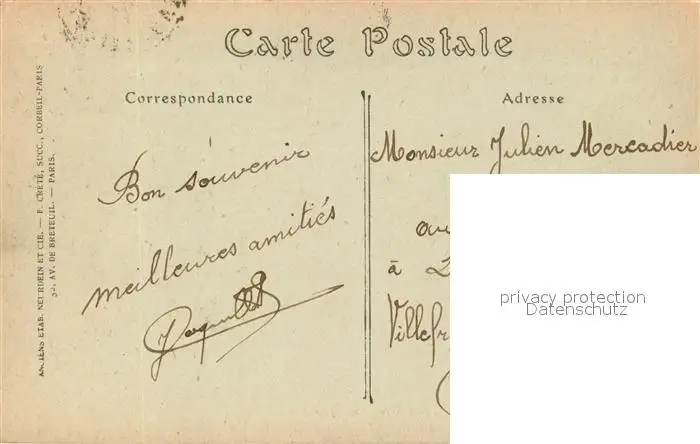 Carte Postale
Correspondance
Adresse
ANCIENS ETAB. NEURDEIN ET CIE. — F. CRÉTÉ, SUCC., CORBEIL-PARIS
52, AV. DE BRETEUIL. — PARIS.
Bon souvenir
meilleures amitiés
Monsieur Julien Mercadier
à
Villefr
privacy protection
Datenschutz